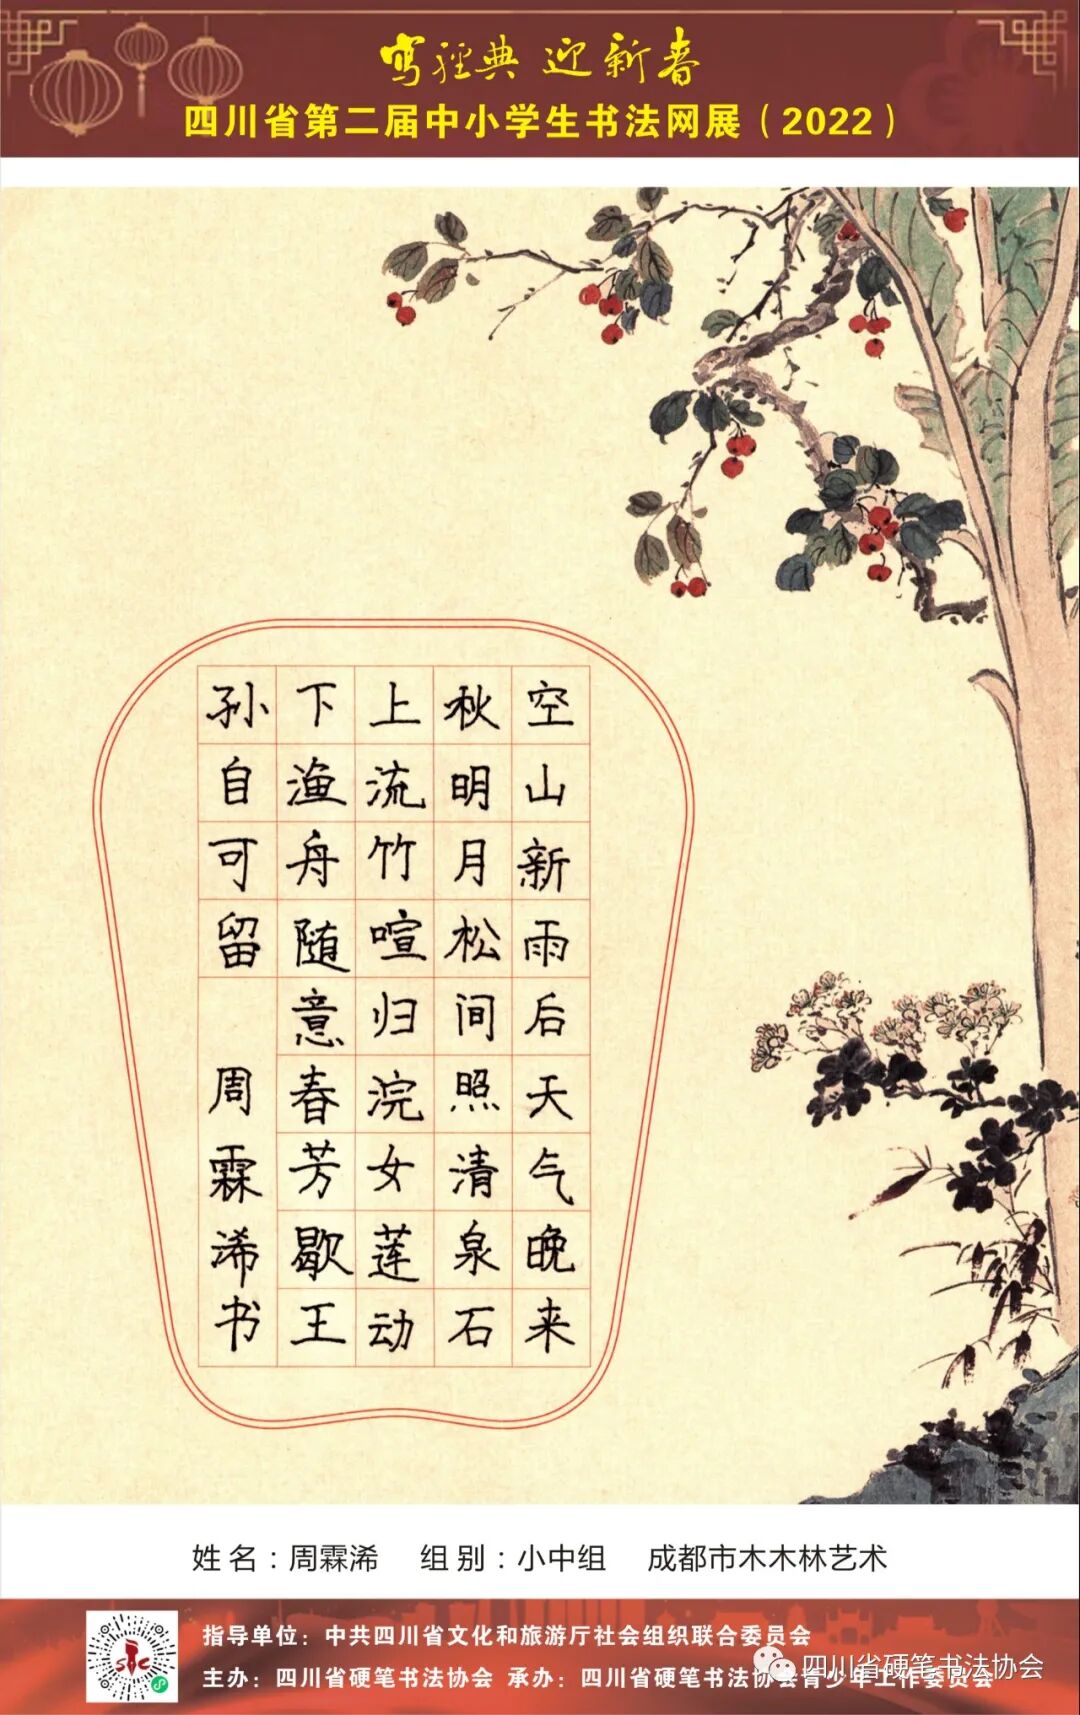 写经典 迎新春
四川省第二届中小学生书法网展（2022）
空山新雨后天气晚来
秋明月松间照清泉石
上流竹喧归浣女莲动
下渔舟随意春芳歇王
孙自可留
周霖浠书
姓名：周霖浠 组别：小中组 成都市木木林艺术
指导单位：中共四川省文化和旅游厅社会组织联合委员会
主办：四川省硬笔书法协会 承办：四川省硬笔书法协会青少年工作委员会
四川省硬笔书法协会